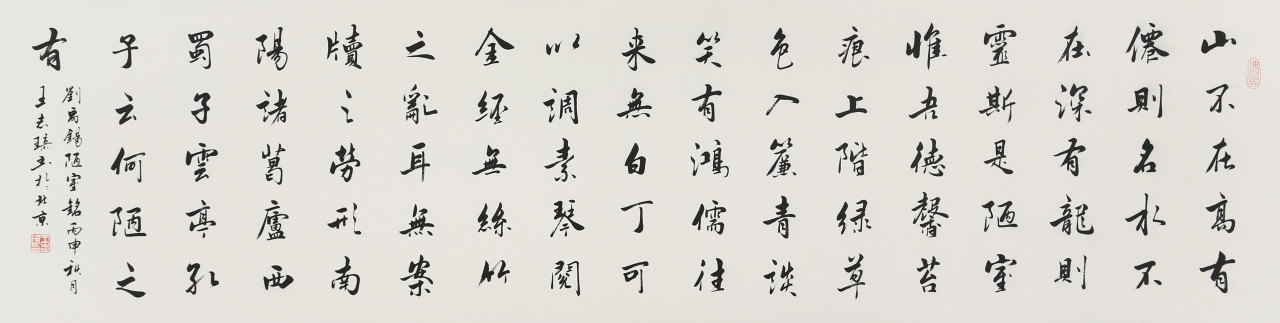 山不在高有
僊則名水不
在深有龍則
靈斯是陋室
惟吾德馨苔
痕上階绿草
色入簾青談
笑有鴻儒往
来無白丁可
以調素琴閱
金經無絲竹
之亂耳無案
牘之勞形南
陽諸葛廬西
蜀子雲亭孔
子云何陋之
有
劉禹錫陋室銘丙申秋月
王志書於北京